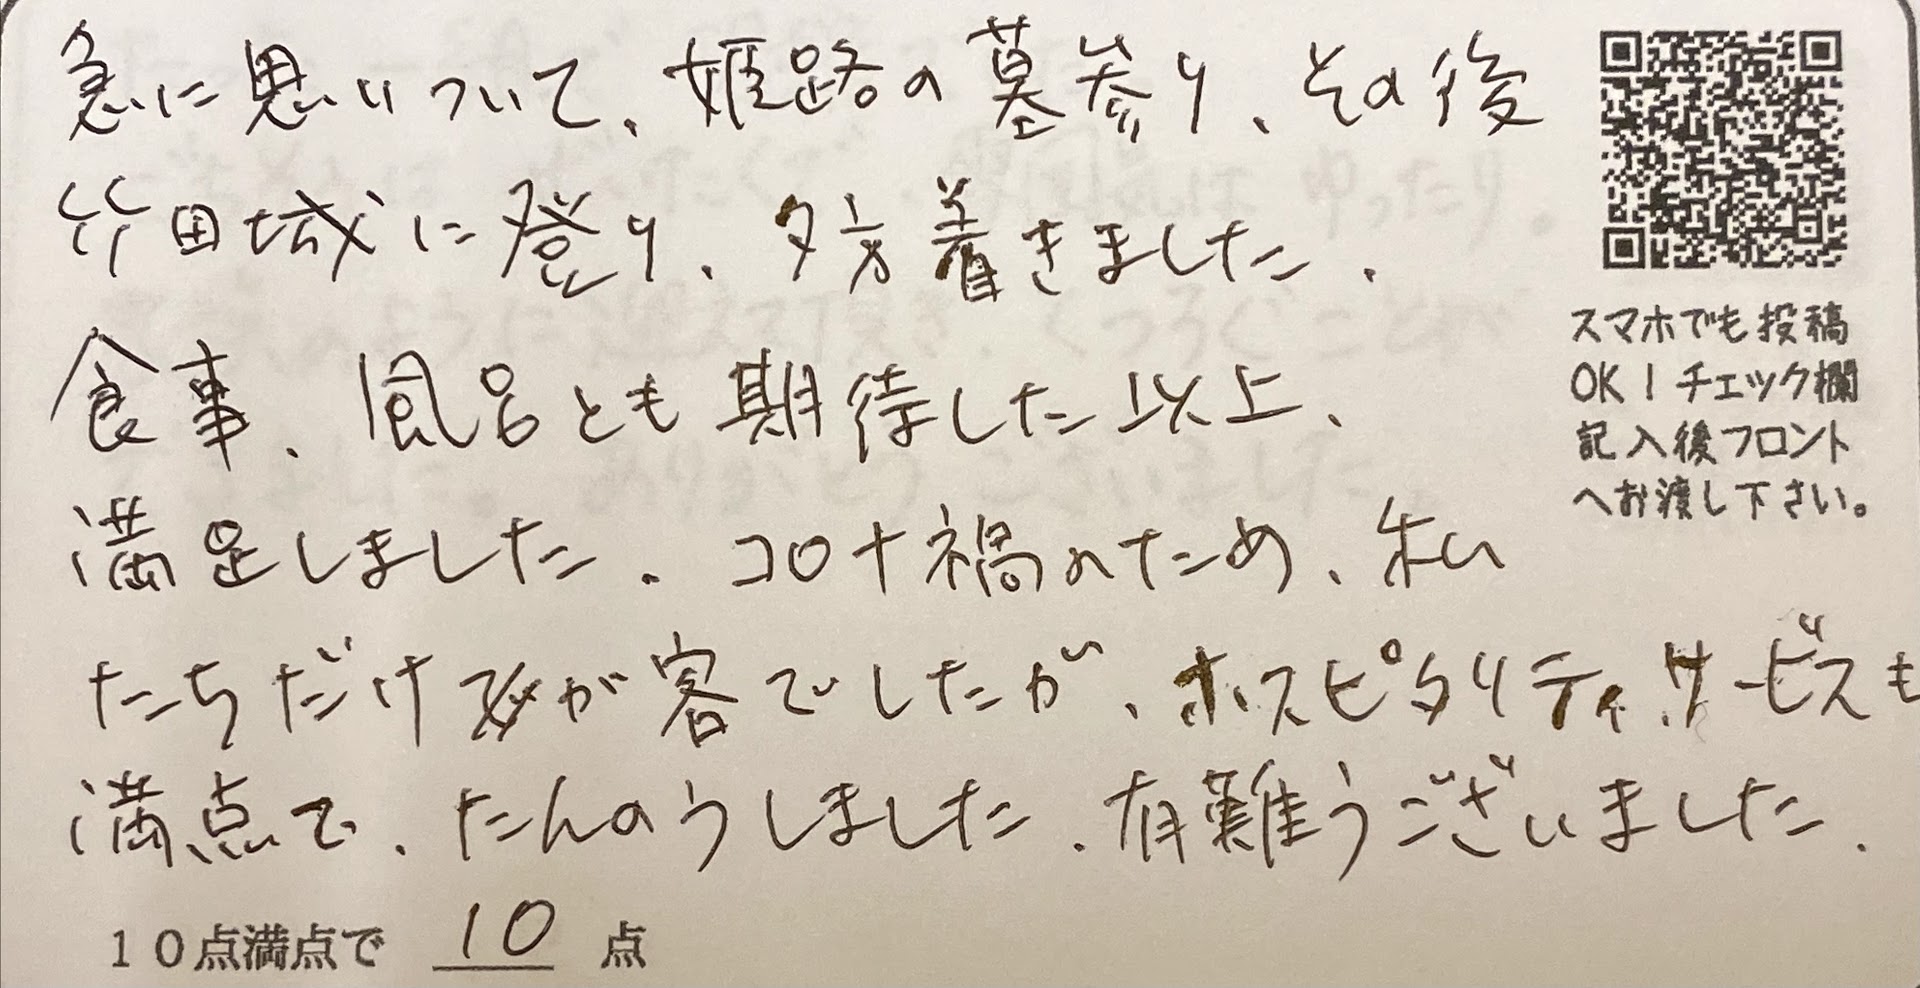 急に思いついて、姫路の墓参り、その後
竹田城に登り、夕方着きました.
食事、風呂とも期待した以上、
満足しました. コロナ禍のため、私
たちだけが客でしたが、ホスピタリティ、サービスも
満点で、たんのうしました. 有難うございました.
10点満点で 10 点
スマホでも投稿
OK！チェック欄
記入後フロント
へお渡し下さい。